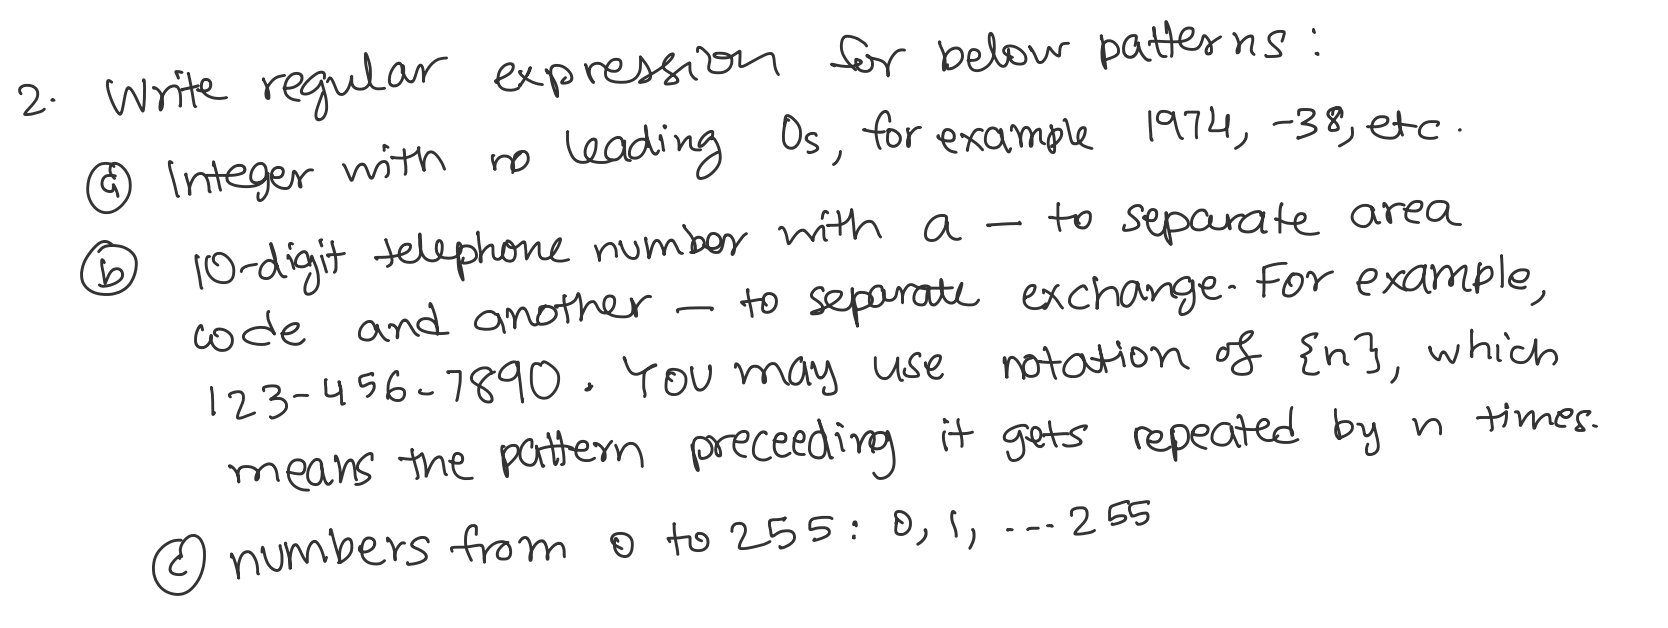 2. Write regular expression for below patterns:
ⓐ Integer with no leading 0s, for example 1974, -38, etc.
ⓑ 10-digit telephone number with a - to separate area
code and another - to separate exchange. For example,
123-456-7890. You may use notation of {n}, which
means the pattern preceeding it gets repeated by n times.
ⓒ numbers from 0 to 255: 0, 1, ... 255